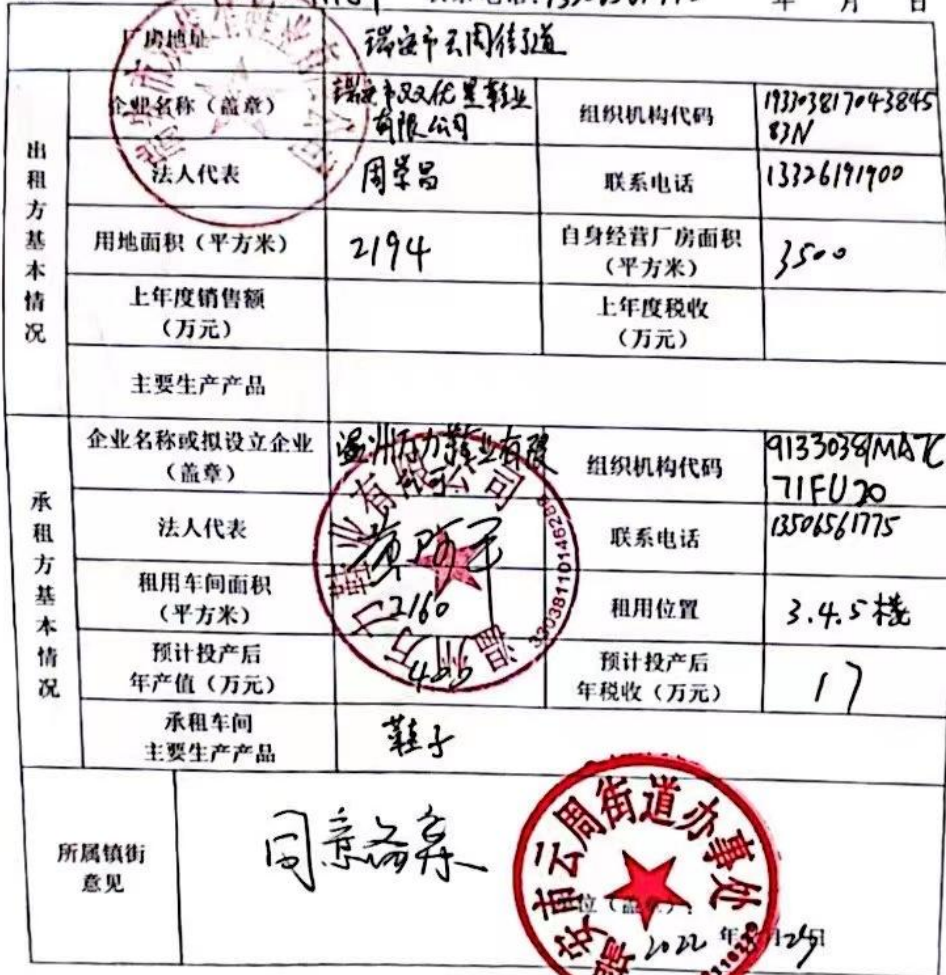 年 月 日
厂房地址 瑞安市云周街道
出租方基本情况
企业名称（盖章） 瑞安市双优星鞋业
有限公司
组织机构代码 193303817043845
83N
法人代表 周学昌 联系电话 13326191900
用地面积（平方米） 2194 自身经营厂房面积
（平方米） 3500
上年度销售额
（万元）
上年度税收
（万元）
主要生产产品
承租方基本情况
企业名称或拟设立企业
（盖章） 温州万力鞋业有限
公司
组织机构代码 91330381MA7C
71FU20
法人代表 联系电话 13506561775
租用车间面积
（平方米） 2160 租用位置 3.4.5楼
预计投产后
年产值（万元） 400
预计投产后
年税收（万元） 17
承租车间
主要生产产品 鞋子
温州万力鞋业有限公司
33038110146289
所属镇街
意见
同意备案
瑞安市云周街道办事处
单位（盖章）：
2022 年 月 日